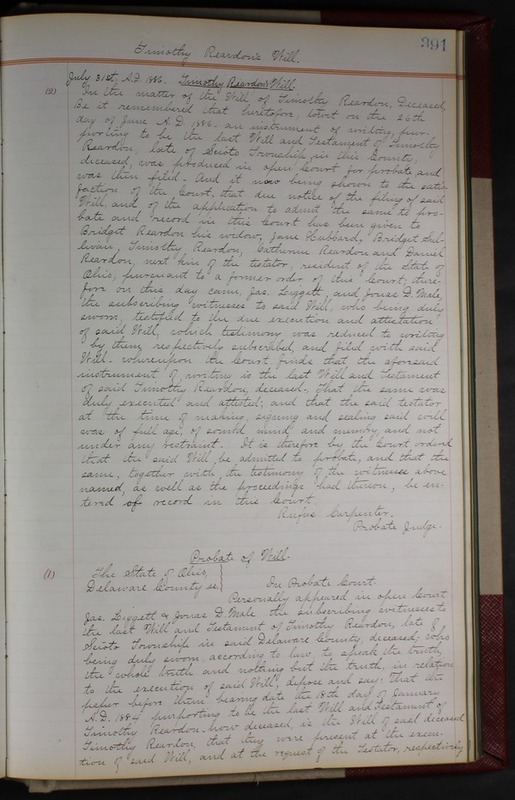 391
Timothy Reardon's Will.
July 31st, A.D. 1886. Timothy Reardon's Will
(2) In the matter of the Will of Timothy Reardon, Deceased,
Be it remembered that heretofore, towit on the 26th
day of June A.D. 1886. an instrument of writing, pur-
porting to be the last Will and Testament of Timothy
Reardon, late of Scioto Township in this County,
deceased, was produced in open Court for probate and
was then filed. And it now being shown to the satis-
faction of the Court, that due notice of the filing of said
Will, and of the application to admit the same to pro-
bate and record in this Court has been given to
Bridget Reardon his widow, Jane Hubbard, Bridget Sul-
livan, Timothy Reardon, Catharine Reardon and Daniel
Reardon, next kin of the testator, resident of the State of
Ohio, pursuant to a former order of this Court, there-
fore on this day came, Jas. Liggett and Jonas D. Male,
the subscribing witnesses to said Will, who being duly
sworn, testified to the due execution and attestation
of said Will, which testimony was reduced to writing
by them, respectively subscribed, and filed with said
Will. whereupon the Court finds that the aforesaid
instrument of writing is the last Will and Testament
of said Timothy Reardon, deceased. That the same was
duly executed and attested; and that the said testator
at the time of making, signing and sealing said will
was of full age, of sound mind and memory, and not
under any restraint. It is therefore by the Court ordered
that the said Will, be admitted to probate, and that the
same, together with the testimony of the witnesses above
named, as well as the proceedings had thereon, be en-
tered of record in this Court.
Rufus Carpenter.
Probate Judge.
Probate of Will.
(1) The State of Ohio, }
Delaware County ss. } In Probate Court
Personally appeared in open Court
Jas. Liggett & Jonas D. Male the subscribing witnesses to
the last Will and Testament of Timothy Reardon, late of
Scioto Township in said Delaware County, deceased, who
being duly sworn according to law, to speak the truth,
the whole truth and nothing but the truth, in relation
to the execution of said Will, depose and say: That the
paper before them bearing date the 18th day of January
A.D. 1884 purporting to be the last Will and Testament of
Timothy Reardon. now deceased, is the Will of said deceased
Timothy Reardon, that they were present at the execu-
tion of said Will, and at the request of the Testator, respectively